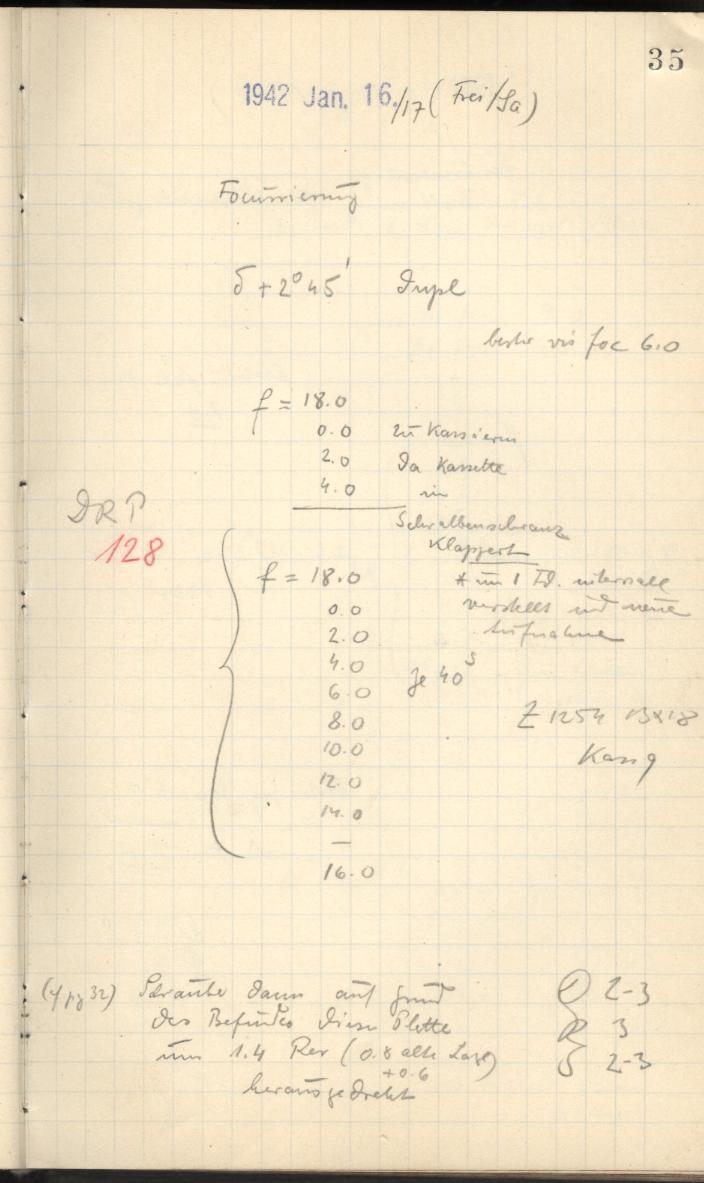 35
1942 Jan. 16./17 (Frei/Sa)
Focussierung
δ + 2° 45'
beste vis foc 6.0
f = 18.0
0.0 zu kassieren
2.0 Da Kassette
4.0 in
Schwalbenschwanz
klappert
DRP
128
f = 18.0 * um 1 Fd. intervall
0.0 verstellt und neue
2.0 Aufnahme
4.0
6.0 je 40s
8.0 Z 1254 13x18
10.0 Kass 9
12.0
14.0
—
16.0
(cf pg 32) Schraube dann auf grund
des Befundes dieser Platte
um 1.4 Rev (0.8 alte Lage)
+0.6
herausgedreht
2-3
R 3
S 2-3